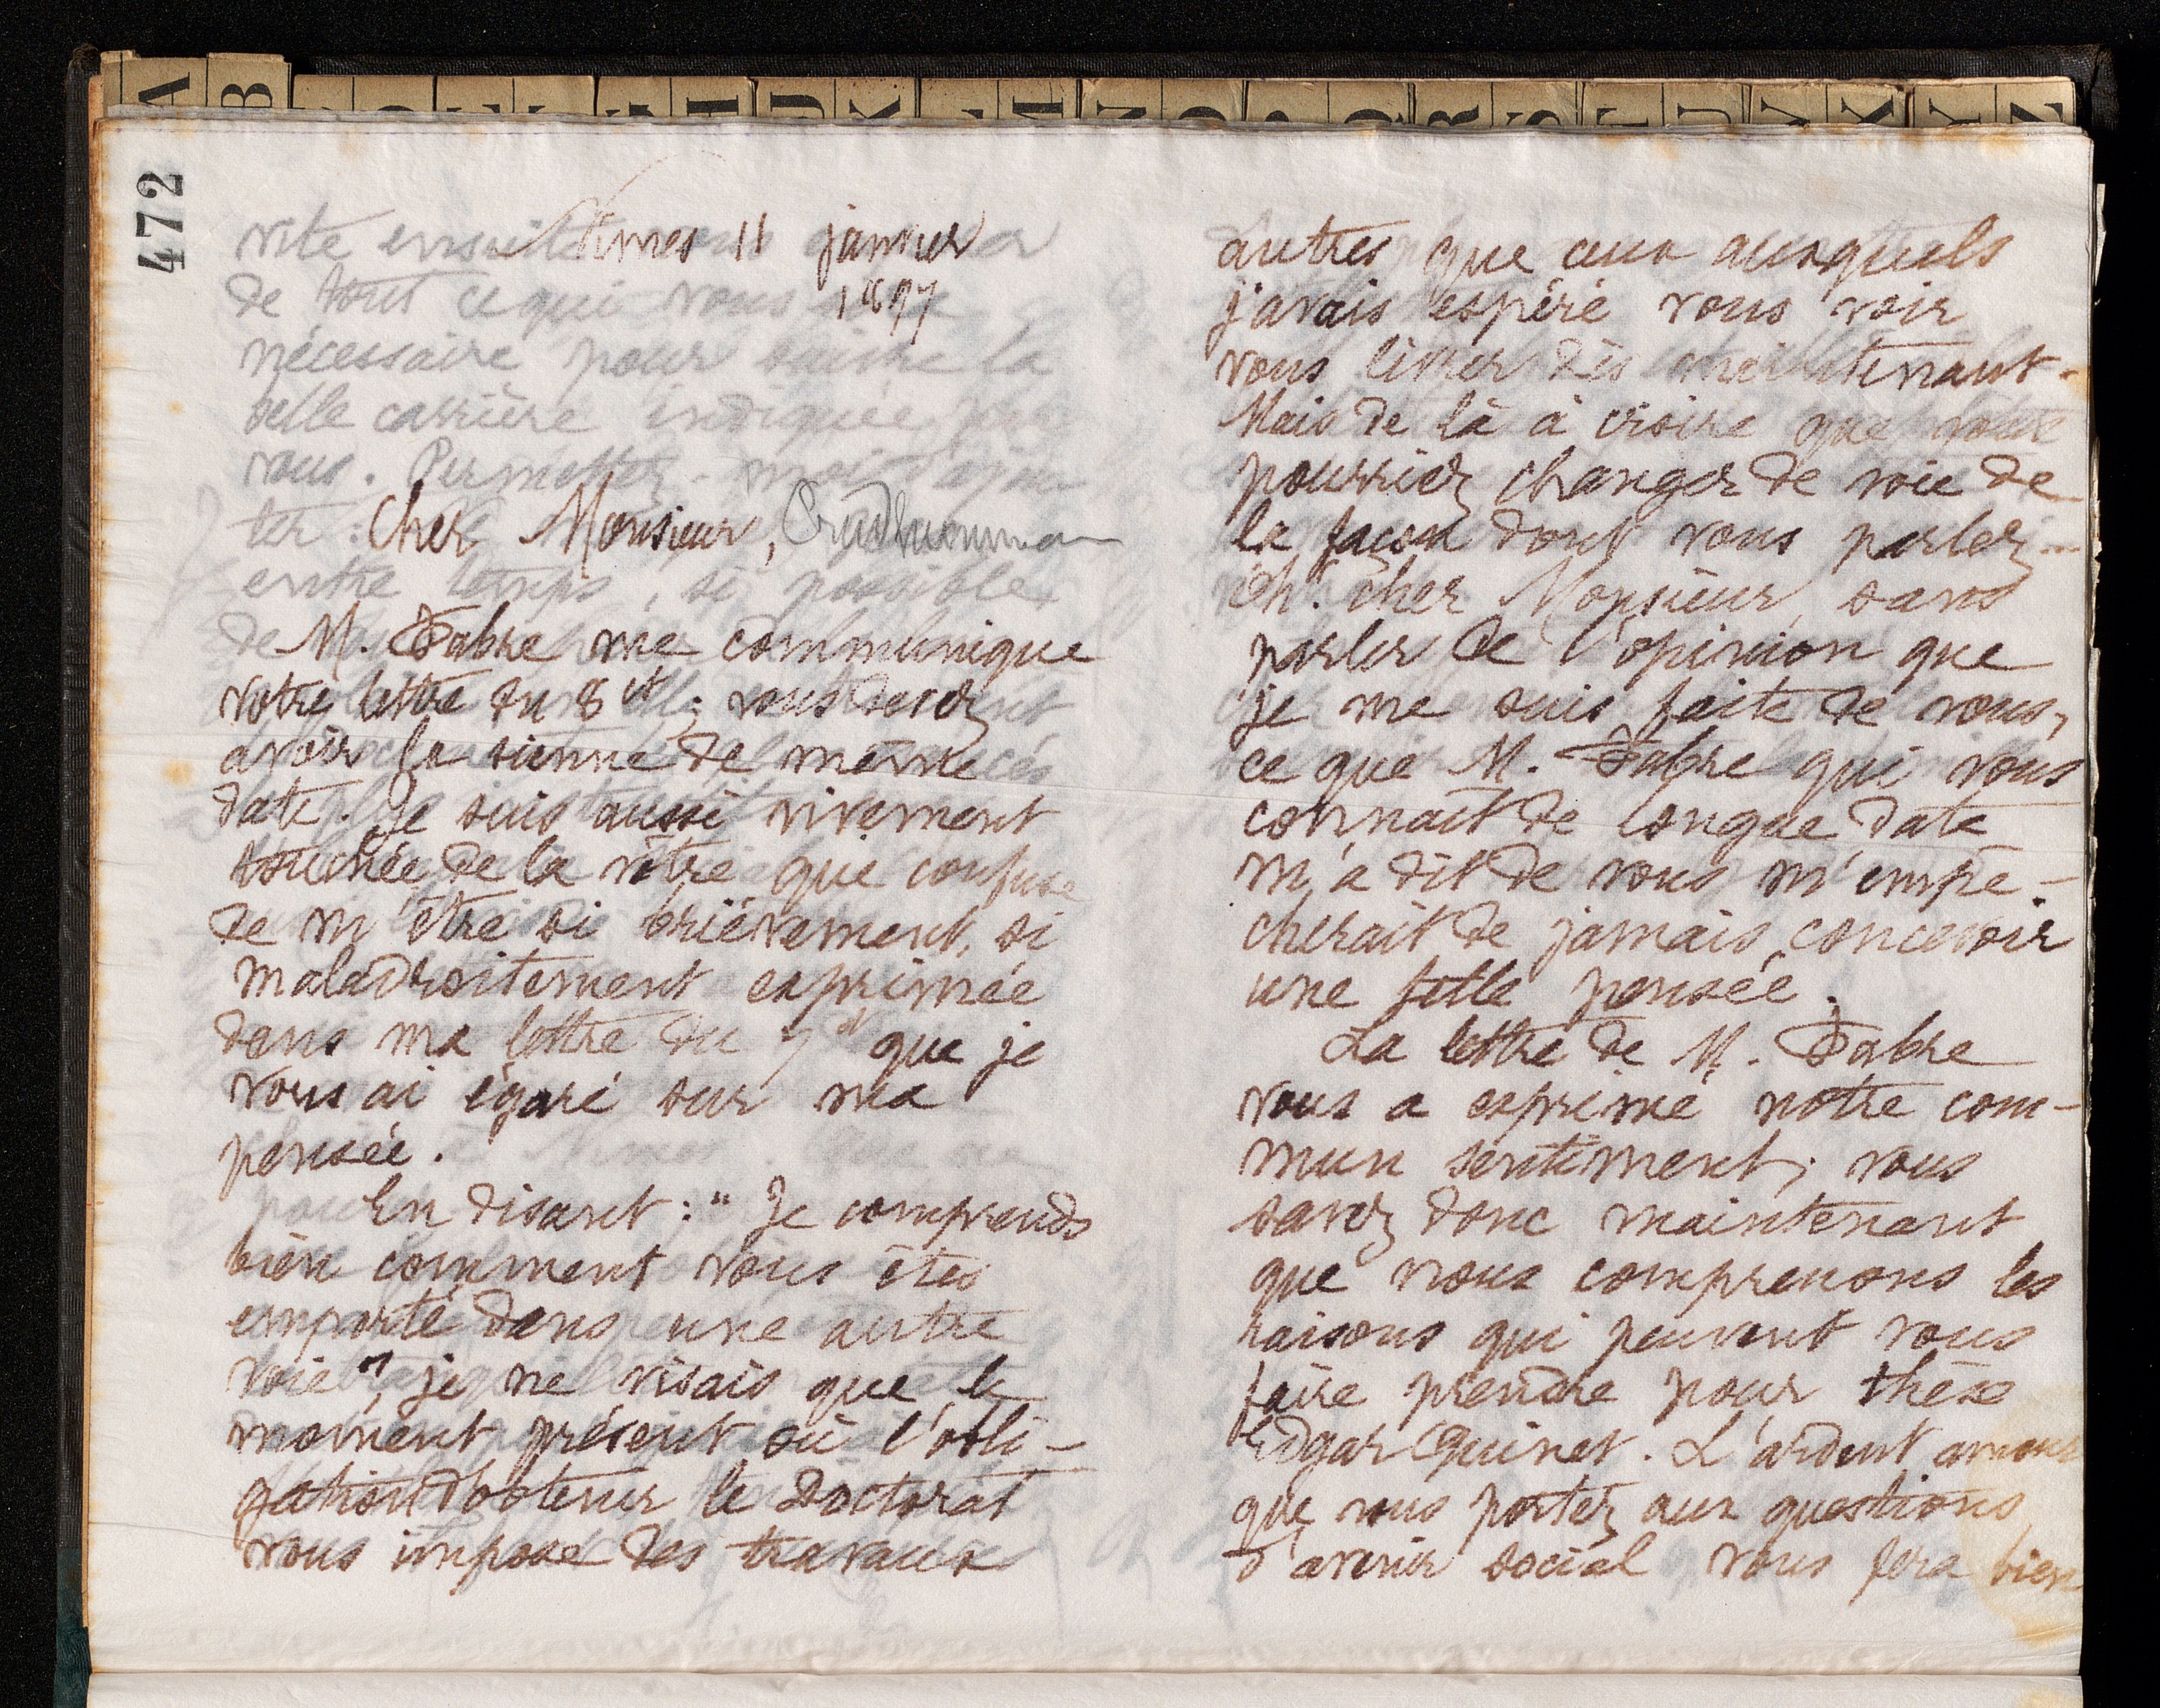 472
Nîmes 11 janvier
1897
Cher Monsieur, Prudhommeaux
M. Fabre me communique
votre lettre du 8 ct; vous devez
avoir la sienne de même
date. Je suis aussi vivement
touchée de la vôtre que confuse
de m'être si brièvement, si
maladroitement exprimée
dans ma lettre du 7 ct que je
vous ai égaré sur ma
pensée.
En disant: "Je comprends
bien comment vous êtes
emporté dans une autre
voie", je ne visais que le
moment présent où l'obli-
gation d'obtenir le doctorat
vous impose des travaux
autres que ceux auxquels
j'avais espéré vous voir
vous livrer dès maintenant.
Mais de là à croire que vous
pourriez changer de voie de
la façon dont vous parlez...
Oh! cher Monsieur, sans
parler de l'opinion que
je me suis faite de vous,
ce que M. Fabre qui vous
connaît de longue date
m'a dit de vous m'empê-
cherait de jamais concevoir
une telle pensée.
La lettre de M. Fabre
vous a exprimé notre com-
mun sentiment; vous
savez donc maintenant
que nous comprenons les
raisons qui peuvent vous
faire prendre pour thèse
Edgar Quinet. L'ardent amour
que vous portez aux questions
d'avenir social vous fera bien